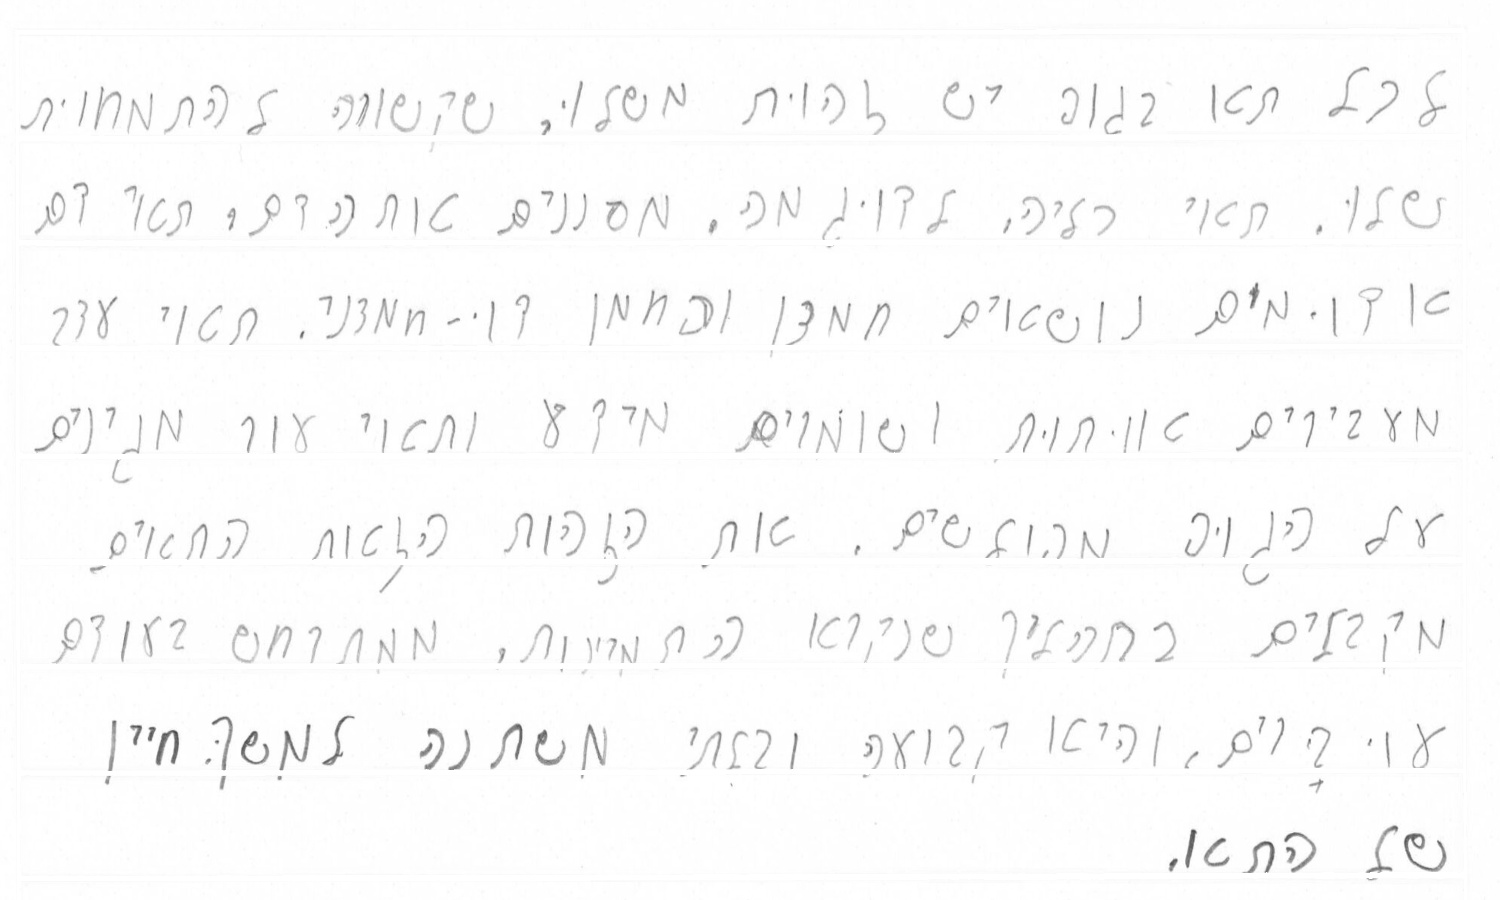 לכל תא בגוף יש זהות משלו, שקשורה להתמחות
שלו. תאי כליה, לדוגמה, מסננים את הדם, תאי דם
אדומים נושאים חמצן ופחמן דו-חמצני. תאי עצב
מעבירים אותות ושומרים מידע ותאי עור מגינים
על הגוף מפולשים. את הזהות הזאת התאים
מקבלים בתהליך שנקרא התמיינות, מתרחש בעודם
עוברים, והיא קבועה ובלתי משתנה למשך חייו
של התא.